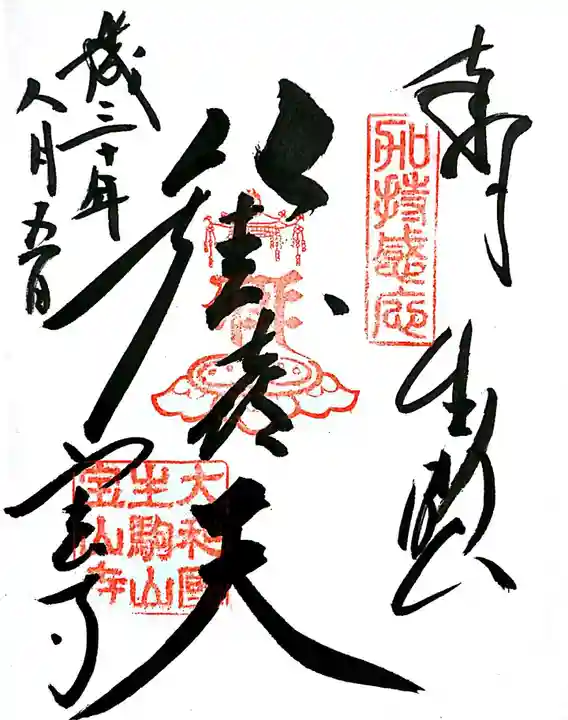 奉拝
生駒山
加持感応
歓喜天
大和國
生駒山
宝山寺
宝山寺
成三十年
八月五日